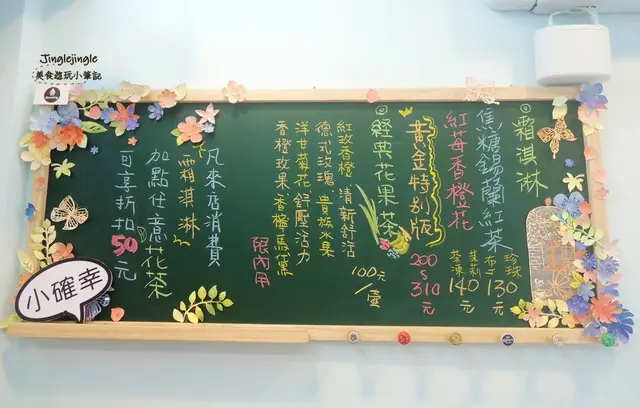 Jinglejingle
美食遊玩小筆記
霜淇淋
焦糖錫蘭紅茶
珍珠
布丁 130元
茉莉
茶凍 140元
紅莓香橙花
黃金特別版
200
~
310
元
經典花果茶
100元/壺
紅玫香橙 清新舒活
德式玫瑰 貴族水果
洋甘菊花 舒壓活力
香橙玫果 香檳馬黛
限內用
凡來店消費
霜淇淋
加點任意花茶
可享折扣50元
小確幸